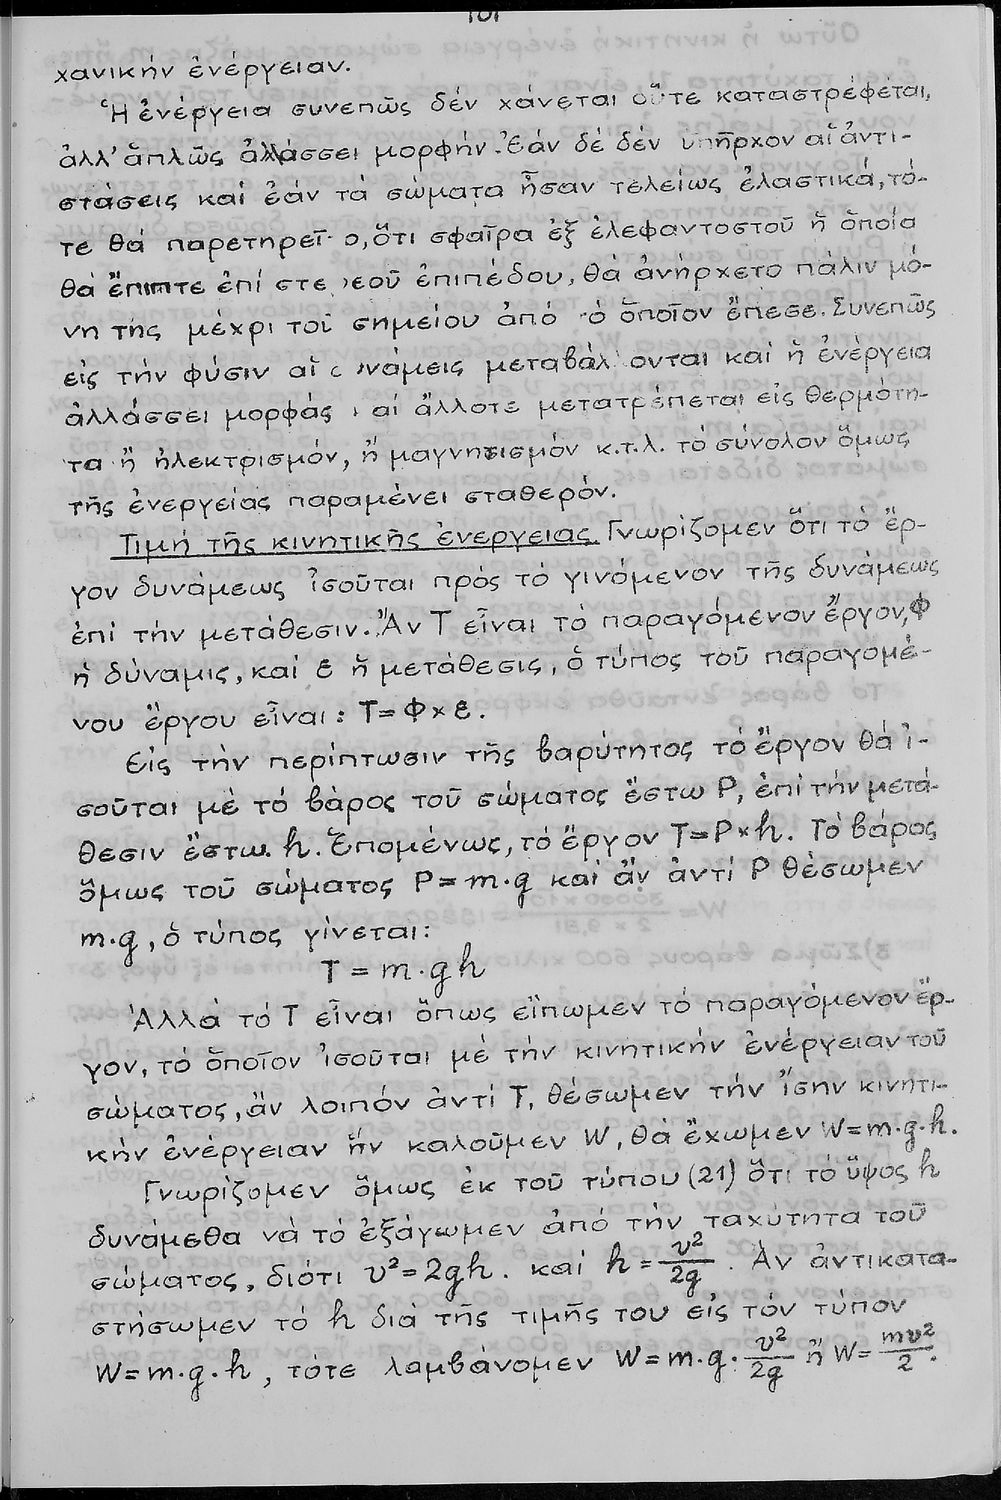 101
χανικήν ἐνέργειαν.
Ἡ ἐνέργεια συνεπῶς δέν χάνεται οὔτε καταστρέφεται,
ἀλλ' ἁπλῶς ἀλλάσσει μορφήν. Ἐάν δέ δέν ὑπῆρχον αἱ ἀντι-
στάσεις καί ἐάν τά σώματα ἦσαν τελείως ἐλαστικά, τό-
τε θά παρετηρεῖ ο, ὅτι σφαῖρα ἐξ ἐλεφαντοστοῦ ἡ ὁποία
θά ἔπιπτε ἐπί στε ρεοῦ ἐπιπέδου, θά ἀνήρχετο πάλιν μό-
νη της μέχρι τοῦ σημείου ἀπό τό ὁποῖον ἔπεσε. Συνεπῶς
εἰς τήν φύσιν αἱ δυνάμεις μεταβάλλονται καί ἡ ἐνέργεια
ἀλλάσσει μορφάς καί ἄλλοτε μετατρέπεται εἰς θερμότη-
τα ἤ ἠλεκτρισμόν, ἤ μαγνητισμόν κ.τ.λ. τό σύνολον ὅμως
τῆς ἐνεργείας παραμένει σταθερόν.
Τιμή τῆς κινητικῆς ἐνεργειας. Γνωρίζομεν ὅτι τό ἔρ-
γον δυνάμεως ἰσοῦται πρός τό γινόμενον τῆς δυνάμεως
ἐπί τήν μετάθεσιν. Ἄν Τ εἶναι τό παραγόμενον ἔργον, Φ
ἡ δύναμις, καί ε ἡ μετάθεσις, ὁ τύπος τοῦ παραγομέ-
νου ἔργου εἶναι: Τ=Φ×ε.
Εἰς τήν περίπτωσιν τῆς βαρύτητος τό ἔργον θά ἰ-
σοῦται μέ τό βάρος τοῦ σώματος ἔστω P, ἐπί τήν μετά-
θεσιν ἔστω. h. Ἐπομένως, τό ἔργον T=P×h. Τό βάρος
ὅμως τοῦ σώματος P=m.g καί ἄν ἀντί P θέσωμεν
m.g, ὁ τύπος γίνεται:
T = m.gh
Ἀλλά τό Τ εἶναι ὅπως εἴπωμεν τό παραγόμενον ἔρ-
γον, τό ὁποῖον ἰσοῦται μέ τήν κινητικήν ἐνέργειαν τοῦ
σώματος, ἄν λοιπόν ἀντί Τ, θέσωμεν τήν ἴσην κινητι-
κήν ἐνέργειαν ἥν καλοῦμεν W, θά ἔχωμεν W=m.g.h.
Γνωρίζομεν ὅμως ἐκ τοῦ τύπου (21) ὅτι τό ὕψος h
δυνάμεθα νά τό ἐξάγωμεν ἀπό τήν ταχύτητα τοῦ
σώματος, διότι v²=2gh. καί h=v²/2g. Ἄν ἀντικατα-
στήσωμεν τό h διά τῆς τιμῆς του εἰς τόν τύπον
W=m.g.h, τότε λαμβάνομεν W=m.g.v²/2g ἤ W=mv²/2.